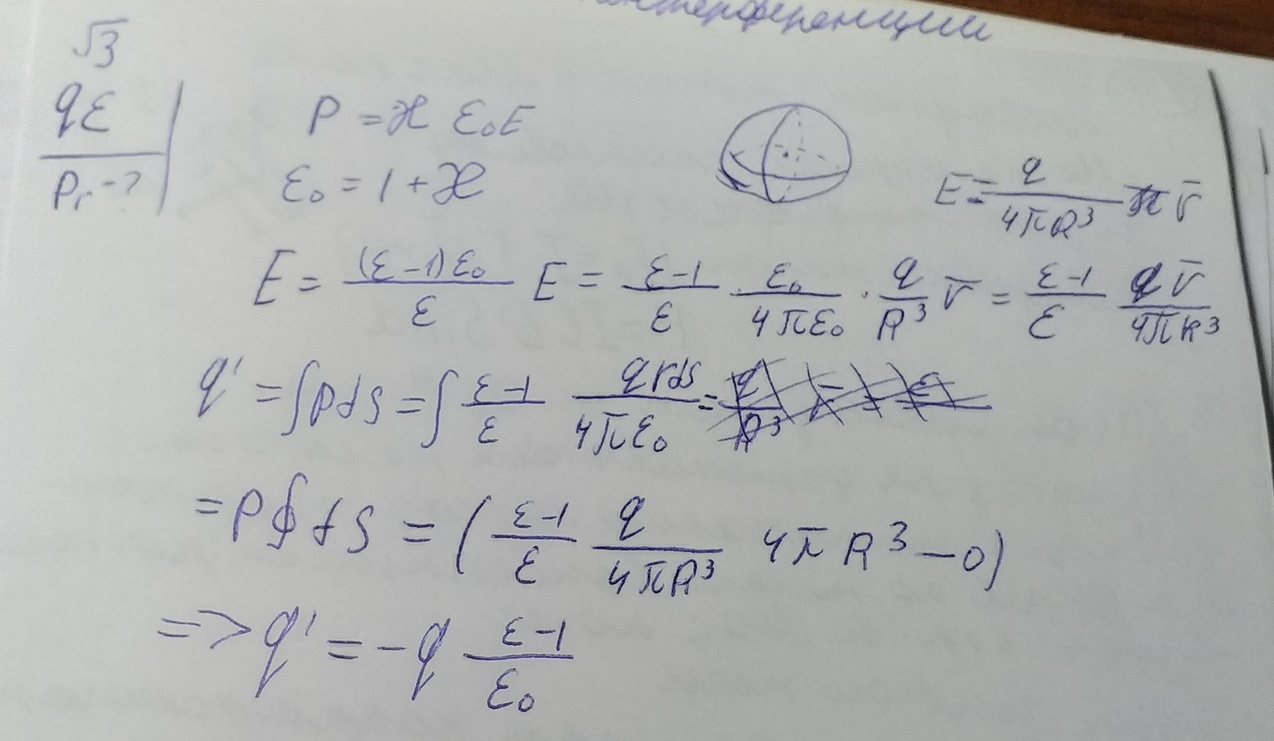 интерференции
√3
qε
Pr - ?
P = ϰ ε₀E
ε₀ = 1 + ϰ
E = q / 4πR³ r̄
E = (ε-1)ε₀ / ε E = ε-1 / ε · ε₀ / 4πε₀ · q / R³ r̄ = ε-1 / ε q r̄ / 4πR³
q' = ∫PdS = ∫ ε-1 / ε qrdS / 4πε₀ =
= P∮dS = ( ε-1 / ε q / 4πR³ 4πR³ - 0)
=> q' = -q ε-1 / ε₀